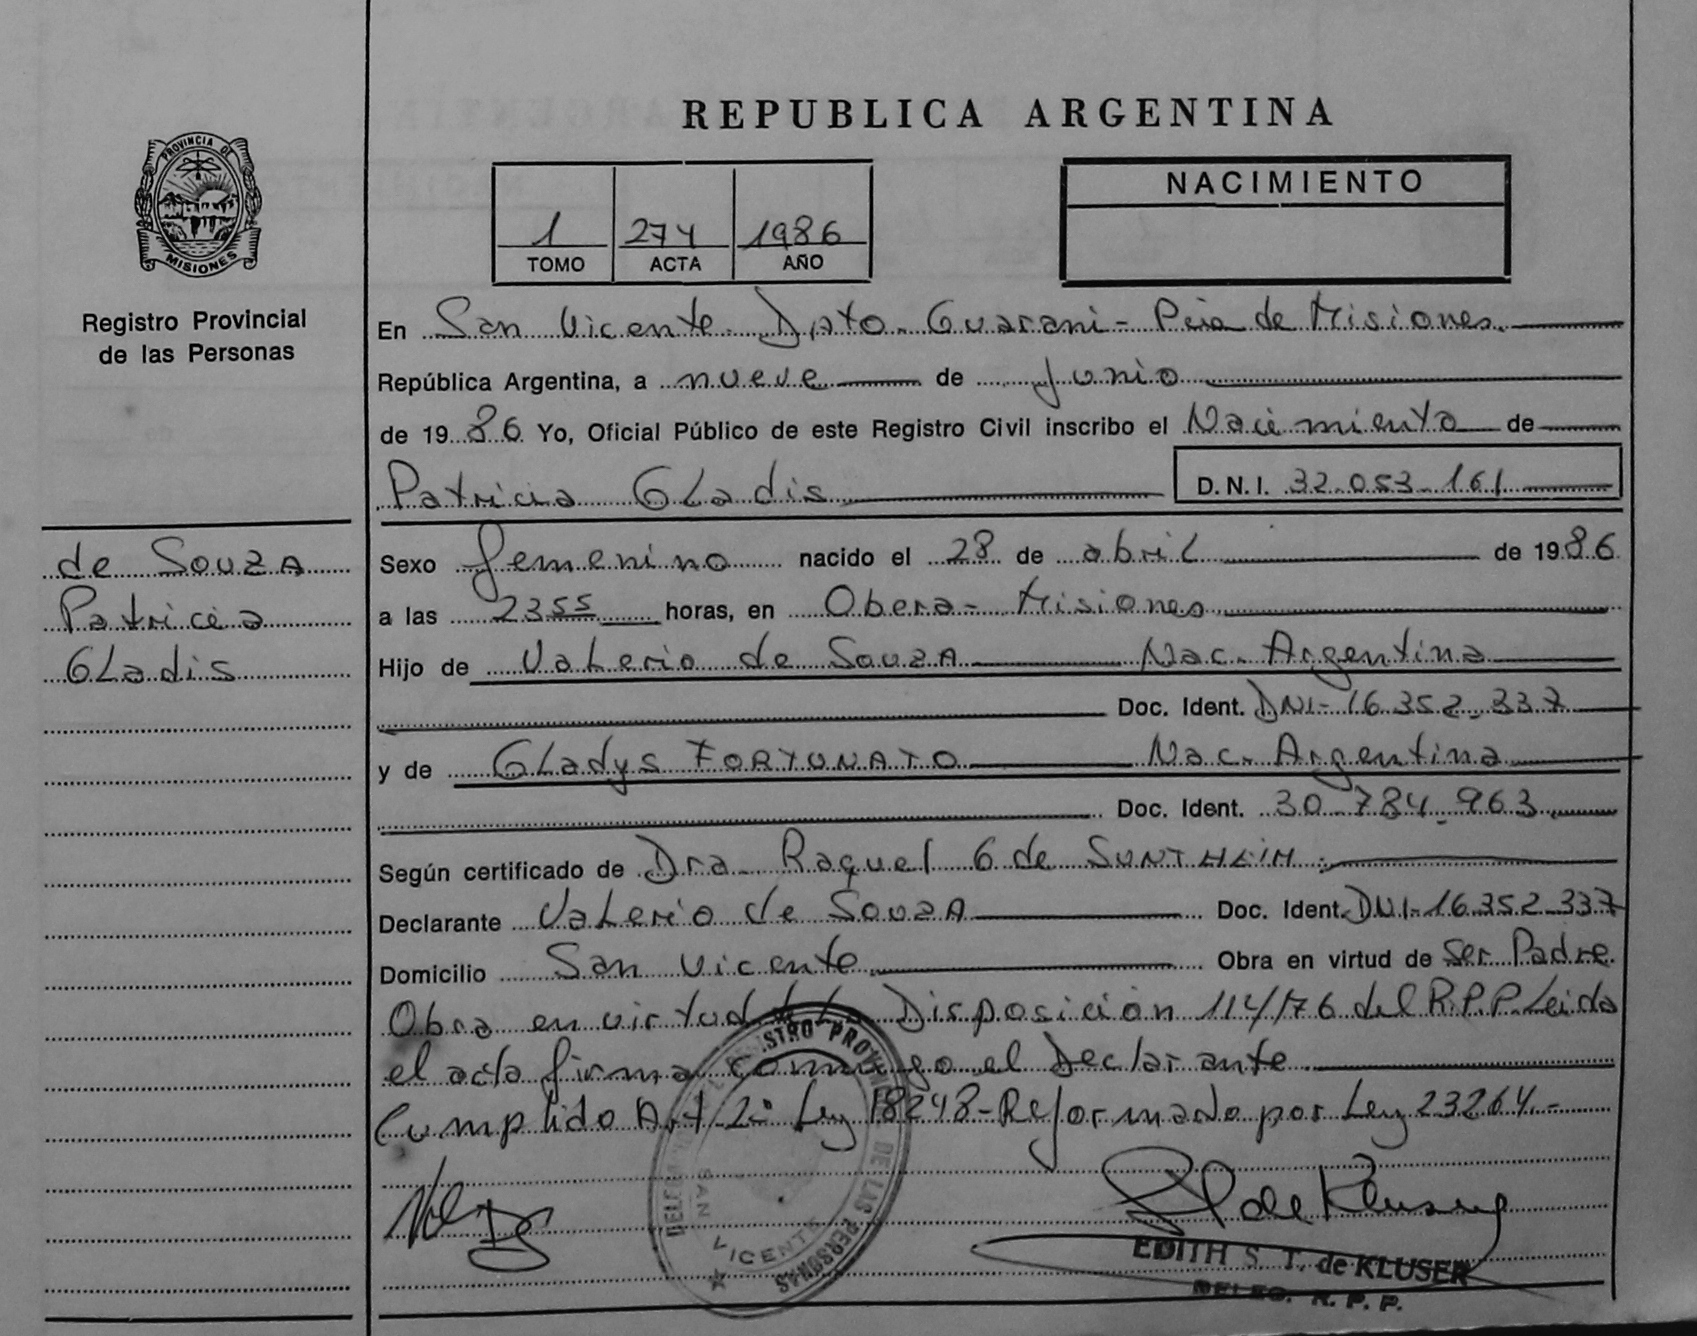 REPUBLICA ARGENTINA
PROVINCIA DE
MISIONES
Registro Provincial
de las Personas
1 274 1986
TOMO ACTA AÑO
NACIMIENTO
En San Vicente Dpto. Guarani - Pcia de Misiones.
República Argentina, a nueve de Junio
de 1986 Yo, Oficial Público de este Registro Civil inscribo el Nacimiento de
Patricia Gladis D.N.I. 32.053.161
de SouzA
Patricia
Gladis
Sexo femenino nacido el 28 de abril de 1986
a las 2355 horas, en Obera - Misiones
Hijo de Valerio de SouzA Nac. Argentina
Doc. Ident. DNI- 16.352.337
y de Gladys FORTUNATO Nac. Argentina
Doc. Ident. 30-784.963
Según certificado de Dra Raquel G de SUNTHEIM
Declarante Valerio de SouzA Doc. Ident. DNI-16.352.337
Domicilio San Vicente Obra en virtud de Ser Padre.
Obra en virtud de la Disposición 114/76 del R.P.P. Leida
el acta firma conmigo el Declarante
Cumplido Art 2º Ley 18248 - Reformado por Ley 23264.-
REGISTRO PROVINCIAL DE LAS PERSONAS
SAN VICENTE
de Kluser
EDITH S. T. de KLUSER
DELEG. R. P. P.